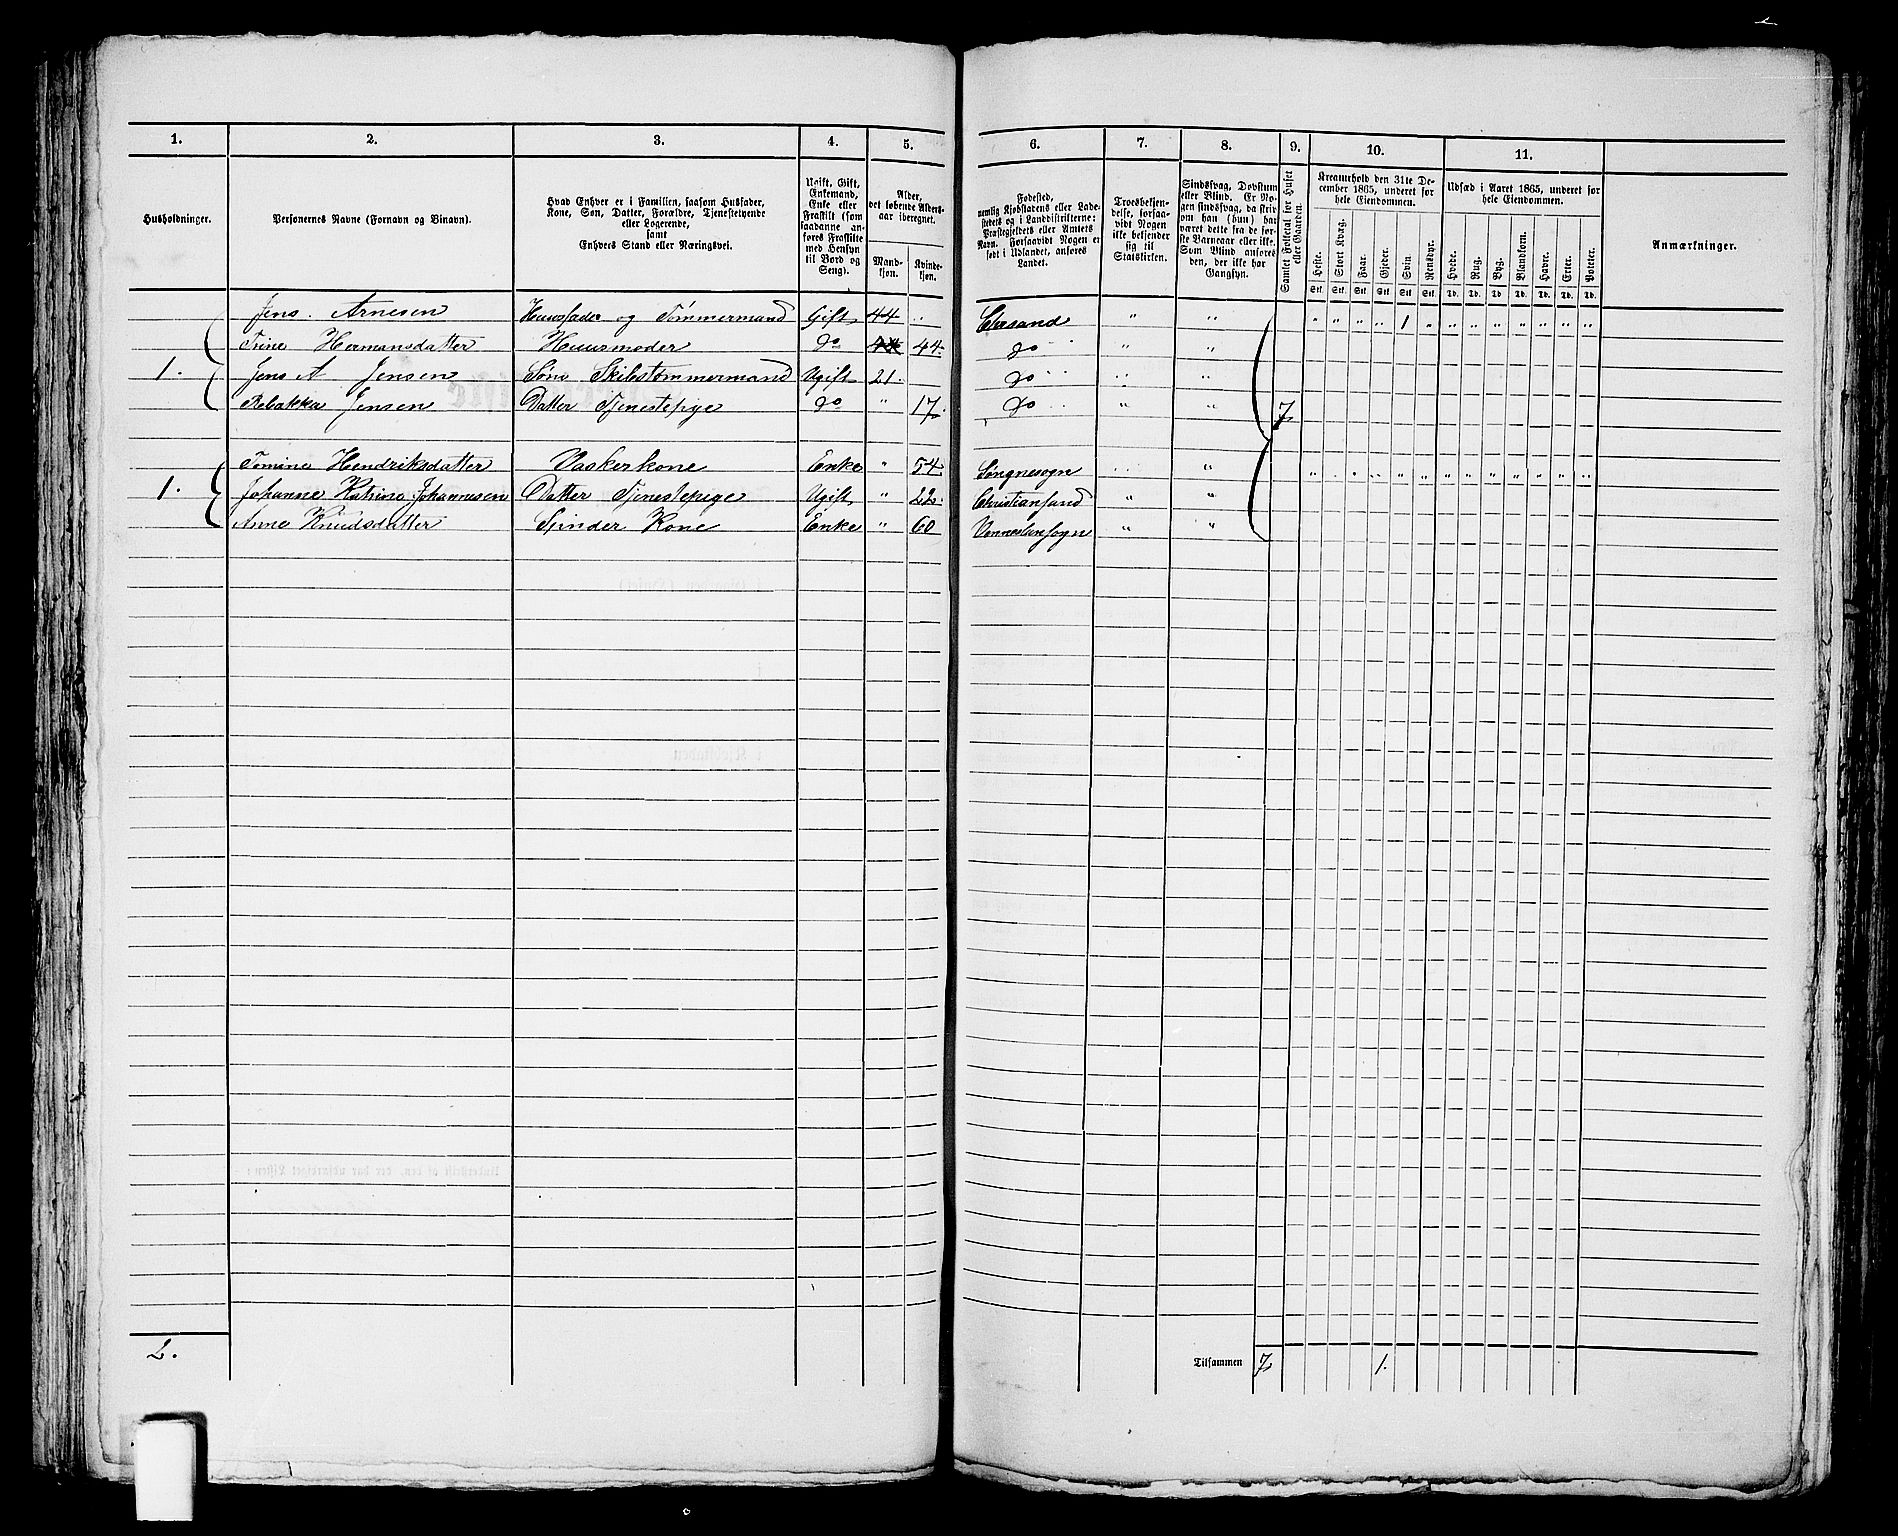 1. 2. 3. 4. 5. 6. 7. 8. 9. 10. 11.
Husholdninger.
Personernes Navne (Fornavn og Binavn).
Hvad Enhver er i Familien, saasom Husfader,
Kone, Søn, Datter, Forældre, Tjenestetyende
eller Logerende,
samt
Enhvers Stand eller Næringsvei.
Ugift, Gift,
Enkemand,
Enke eller
Fraskilt (som
saadanne an-
føres Fraskilte
med Hensyn
til Bord og
Seng).
Alder,
det løbende Alders-
aar iberegnet.
Mand-
kjøn.
Kvinde-
kjøn.
Fødested,
nemlig Kjøbstadens eller Lade-
stedets og i Landdistrikterne:
Præstegjeldets eller Amtets
Navn. Forsaavidt Nogen er
født i Udlandet, anføres
Landet.
Troesbekjen-
delse, forsaa-
vidt Nogen
ikke bekjender
sig til
Statskirken.
Sindssvag, Døvstum
eller Blind. Er No-
gen sindssvag, da skriv
om han (hun) har
været dette fra de før-
ste Barneaar eller ikke.
Som Blind anføres
den, der ikke har
Gangsyn.
Samlet Folketal for Huset
eller Gaarden.
Kreaturhold den 31te De-
cember 1865, underet for
hele Eiendommen.
Heste. Stort Kvæg. Faar. Gjeder. Svin. Rensdyr.
Stk. Stk. Stk. Stk. Stk. Stk.
Udsæd i Aaret 1865, underet for
hele Eiendommen.
Hvede. Rug. Byg. Blandkorn. Havre. Erter. Poteter.
Td. Td. Td. Td. Td. Td. Td.
Anmærkninger.
Jens Arnesen Huusfader og Tömmermand Gift 44 " Chrsand " " " " " " 1 " " " " " " " "
Trine Hermansdatter Huusmoder do 44 44 do " "
1. Jens A Jensen Søn Skibstømmermand Ugift 21 do " "
Rebakka Jensen Datter Tjenestepige do " 17 do " " 7
Tomine Hendriksdatter Vaskerkone Enke " 54 Søngnesogn " " " " " " " " " " " " " " "
1. Johanne Katrine Johannesen Datter Tjenestepige Ugift " 22 Christiansand " "
Anne Knudsdatter Spinder Kone Enke " 60 Venneslansogn " "
2. Tilsammen 7 1.